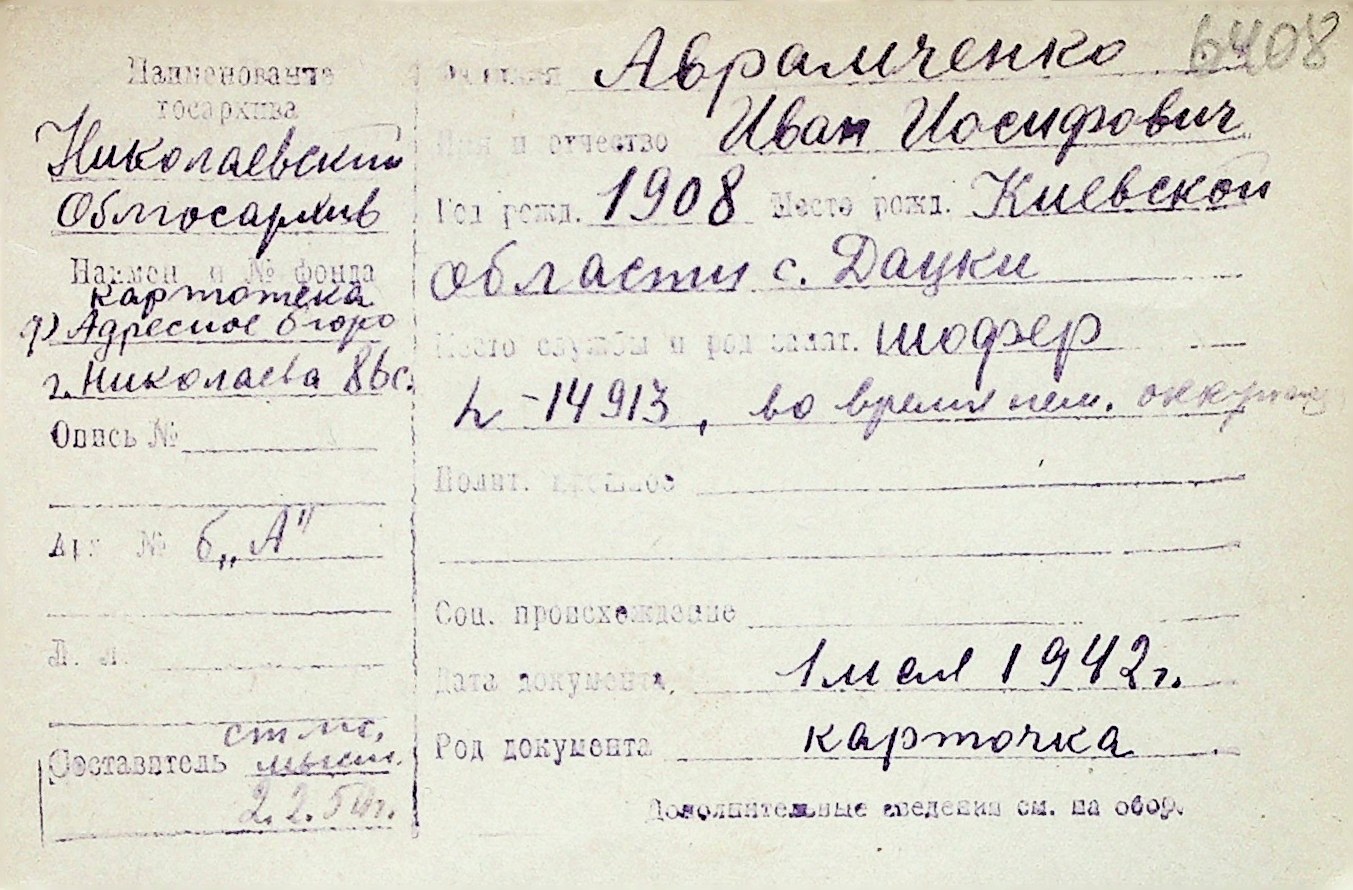 6408
Наименование
госархива
Николаевский
Облгосархив
Наимен и № фонда
картотека
Адресное бюро
г. Николаева
Опись №
Арх № б „А"
Л. л.
Составитель
2.2.50г.
Фамилия Аврамченко
Имя и отчество Иван Иосифович
Год рожд. 1908 Место рожд. Киевской
области с. Дацки
Место службы и род занят. шофер
14913, во время нем. оккупац
Полит. прошлое
Соц. происхождение
Дата документа, 1 мая 1942 г.
Род документа карточка
Дополнительные сведения см. на обор.